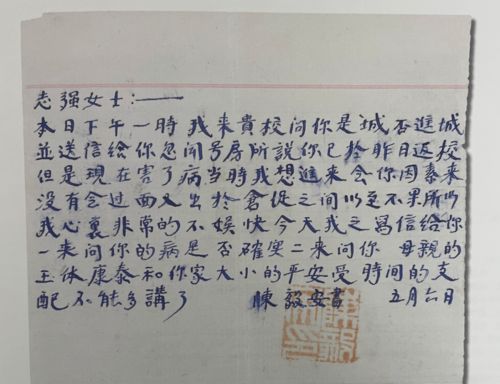 志强女士：——
本日下午一時我来貴校问你是城否進城
並送信给你忽闻号房所說你已於昨日返校
但是現在害了病当時我想進来会你因素来
没有会过面又出於倉促之间以至不果所以
我心裏非常的不娛快今天我之寫信给你
一来问你的病是否確实二来问你 母親的
玉体康泰和你家大小的平安受時间的支
配不能多講了 陳毅安書 五月六日